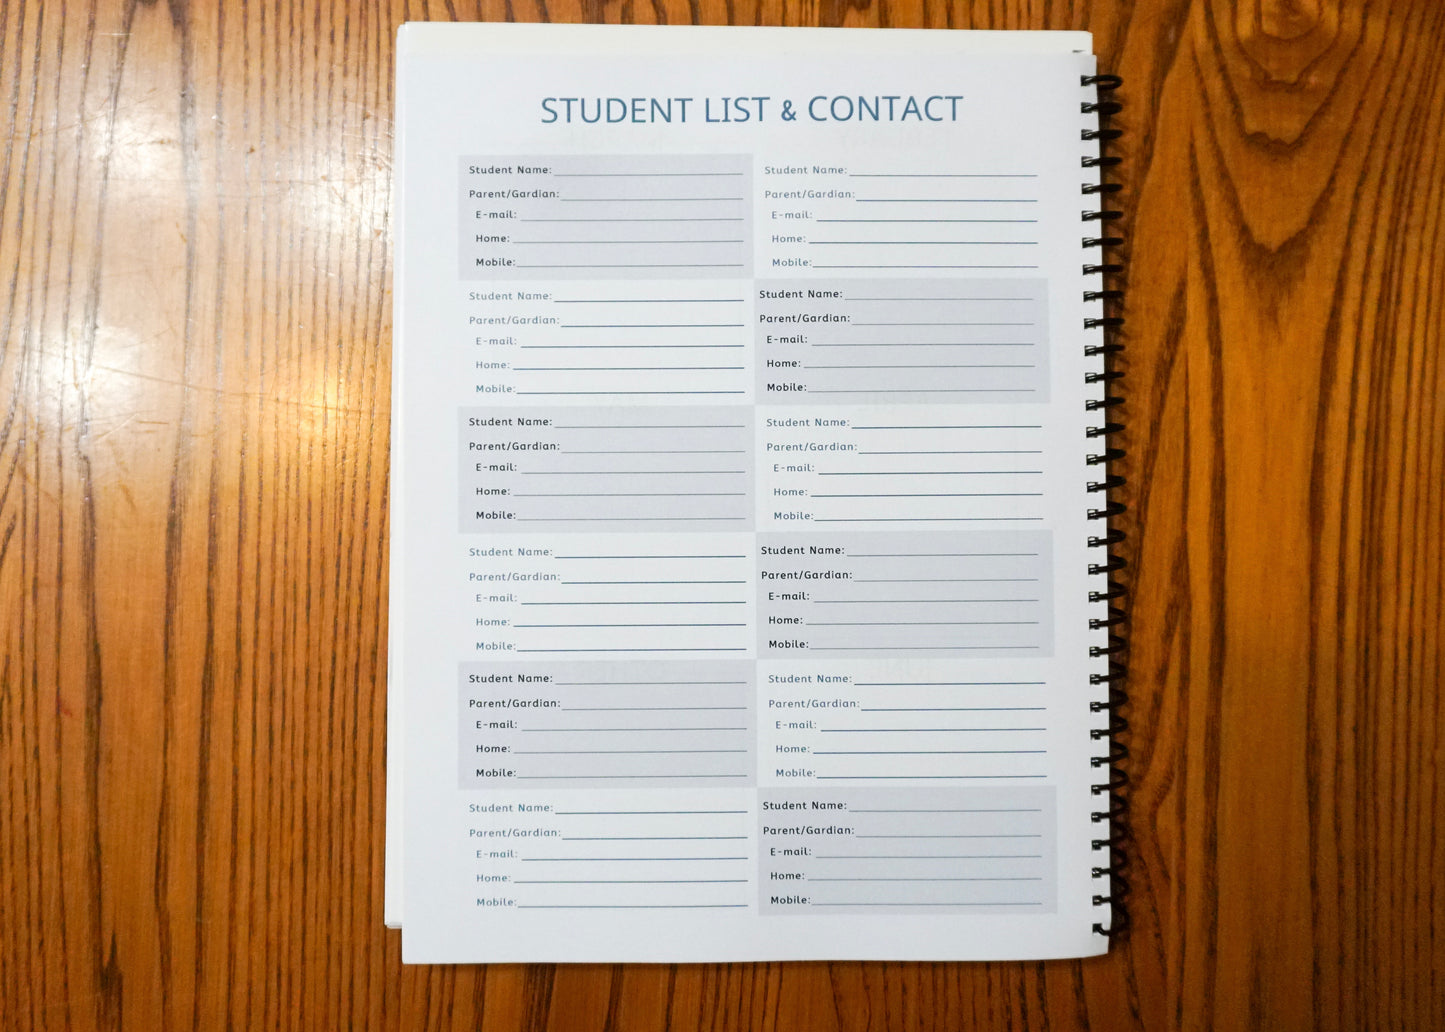 STUDENT LIST & CONTACT
Student Name:
Parent/Gardian:
E-mail:
Home:
Mobile:
Student Name:
Parent/Gardian:
E-mail:
Home:
Mobile:
Student Name:
Parent/Gardian:
E-mail:
Home:
Mobile:
Student Name:
Parent/Gardian:
E-mail:
Home:
Mobile:
Student Name:
Parent/Gardian:
E-mail:
Home:
Mobile:
Student Name:
Parent/Gardian:
E-mail:
Home:
Mobile:
Student Name:
Parent/Gardian:
E-mail:
Home:
Mobile:
Student Name:
Parent/Gardian:
E-mail:
Home:
Mobile:
Student Name:
Parent/Gardian:
E-mail:
Home:
Mobile:
Student Name:
Parent/Gardian:
E-mail:
Home:
Mobile:
Student Name:
Parent/Gardian:
E-mail:
Home:
Mobile:
Student Name:
Parent/Gardian:
E-mail:
Home:
Mobile: